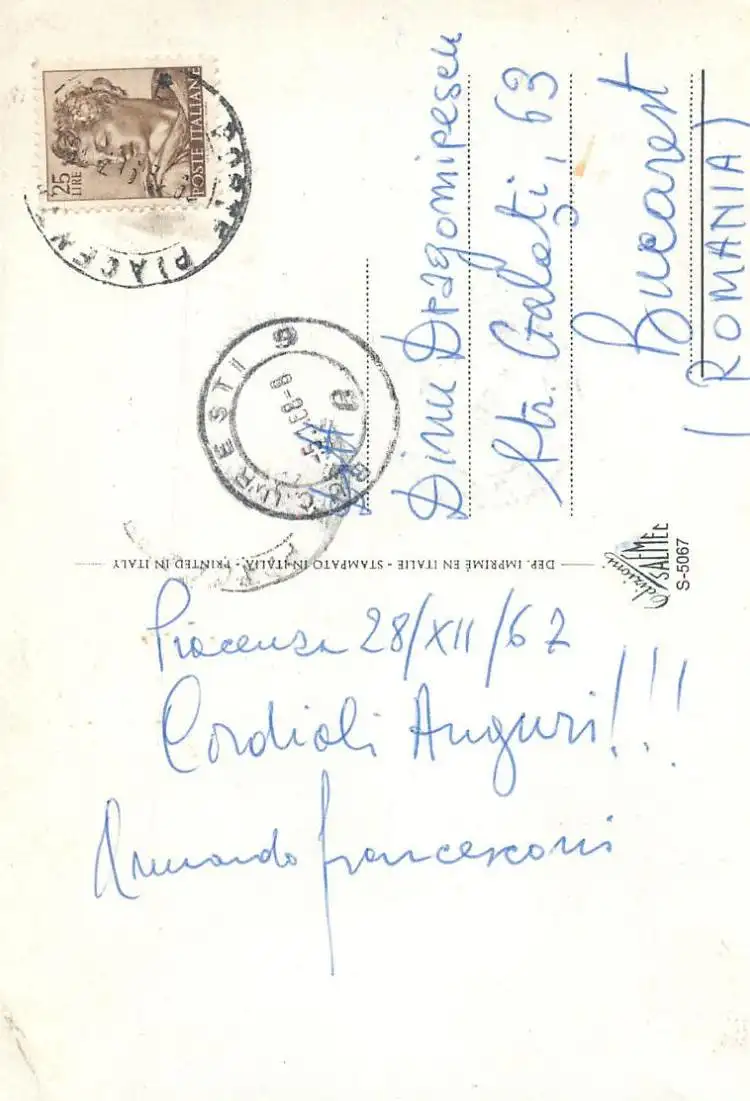 25
LIRE
POSTE ITALIANE
PIACENZA
BUCURESTI
9
Dinu Dragomirescu
Str. Galați, 63
Bucarest
(ROMANIA)
DEP. IMPRIMÉ EN ITALIE - STAMPATO IN ITALIA - PRINTED IN ITALY
edizioni
SAEMEC
S-5067
Piacenza 28/XII/67
Cordiali Auguri!!!
Armando Francesconi